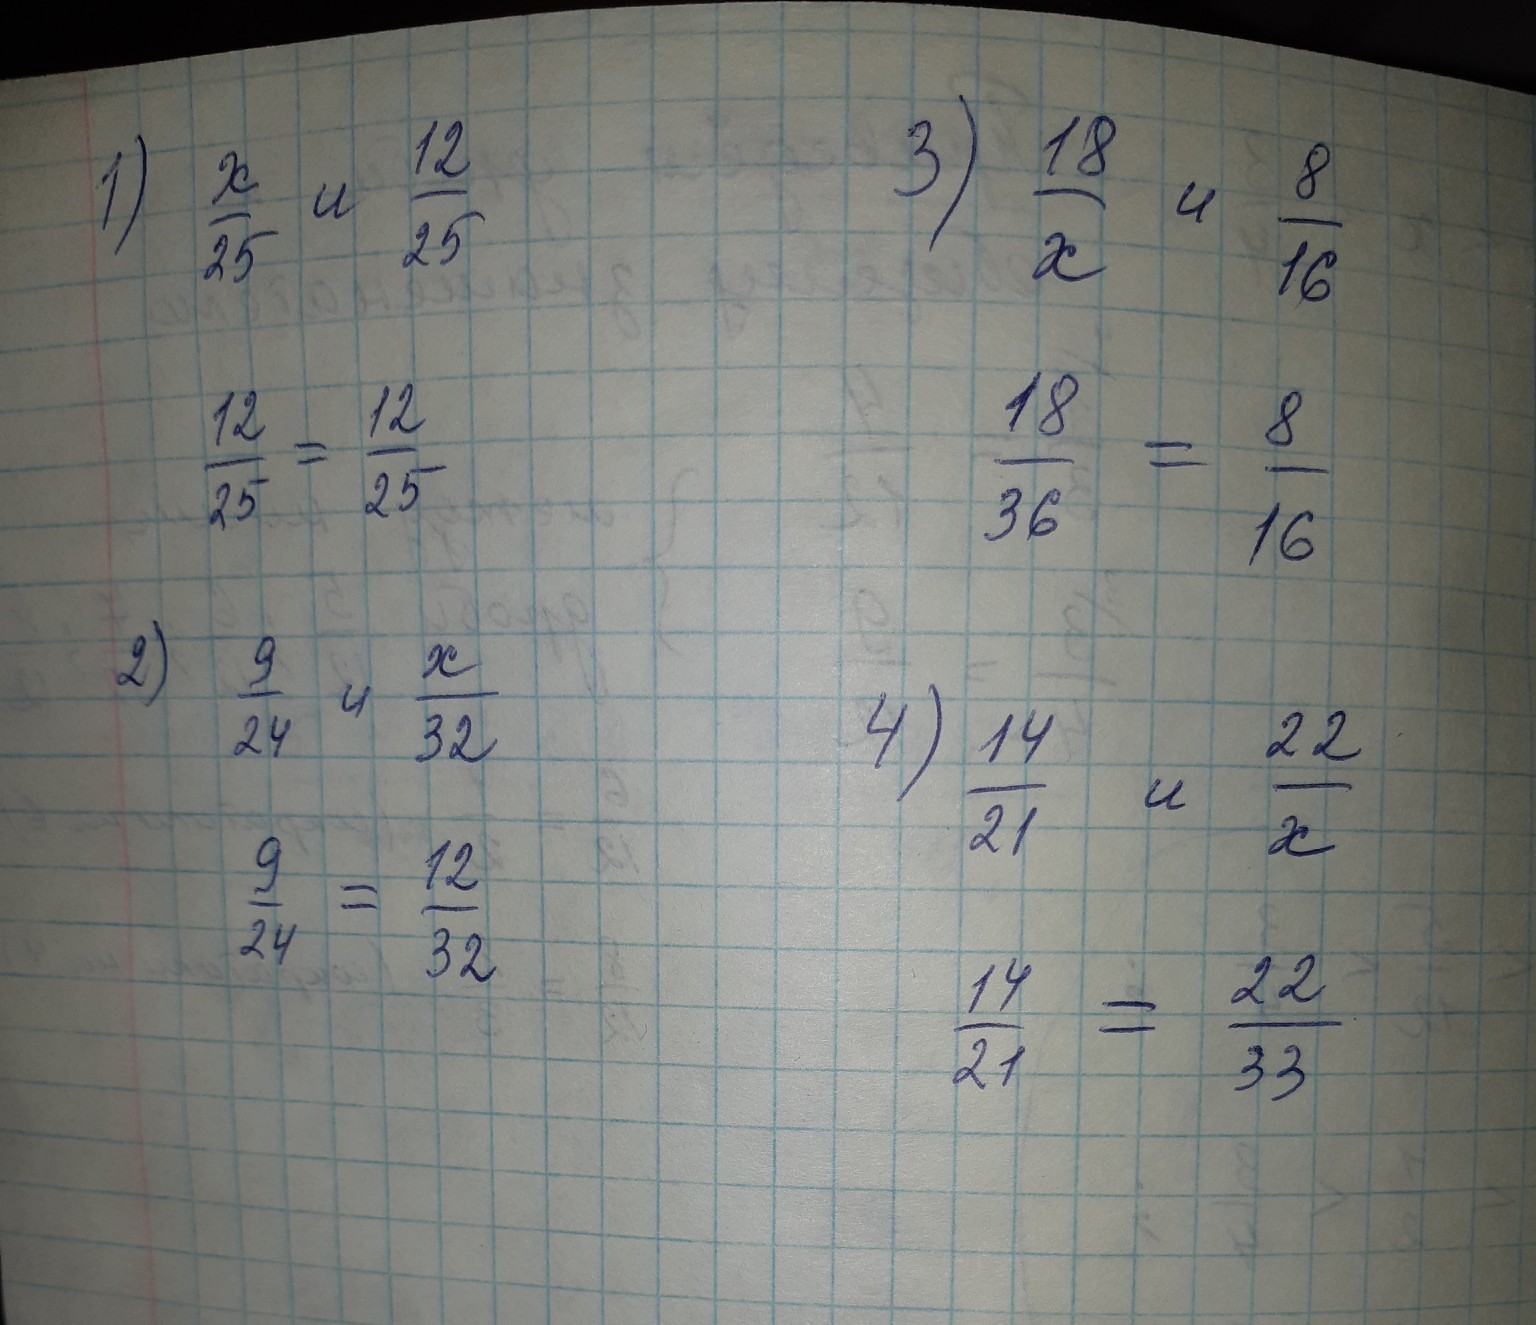 1) x/25 и 12/25
12/25 = 12/25
2) 9/24 и x/32
9/24 = 12/32
3) 18/x и 8/16
18/36 = 8/16
4) 14/21 и 22/x
14/21 = 22/33